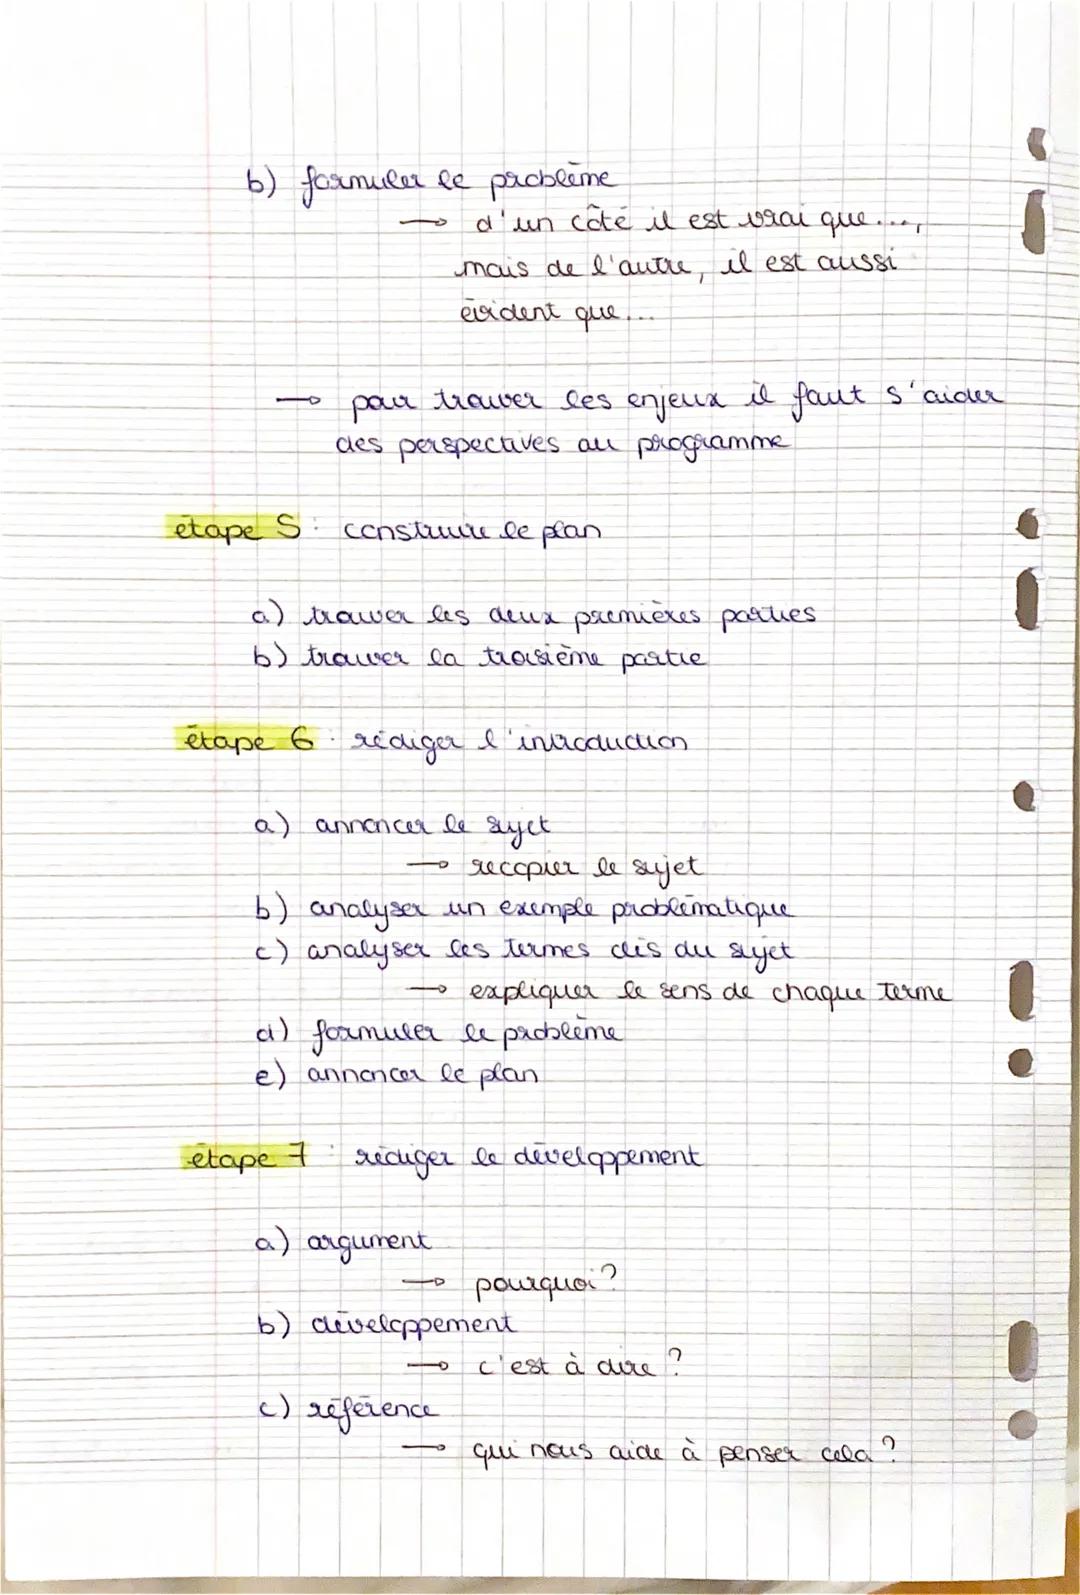 b) formuler le problème
→ d'un côté il est vrai que...,
mais de l'autre, il est aussi
évident que...
→ pour trouver les enjeux il faut s'aider
des perspectives au programme
étape 5 : construire le plan
a) trouver les deux premières parties
b) trouver la troisième partie
étape 6 : rédiger l'introduction
a) annoncer le sujet
→ recopier le sujet
b) analyser un exemple problématique
c) analyser les termes clés du sujet
→ expliquer le sens de chaque terme
d) formuler le problème
e) annoncer le plan
étape 7 : rédiger le développement
a) argument
→ pourquoi ?
b) développement
→ c'est à dire ?
c) référence
→ qui nous aide à penser cela ?